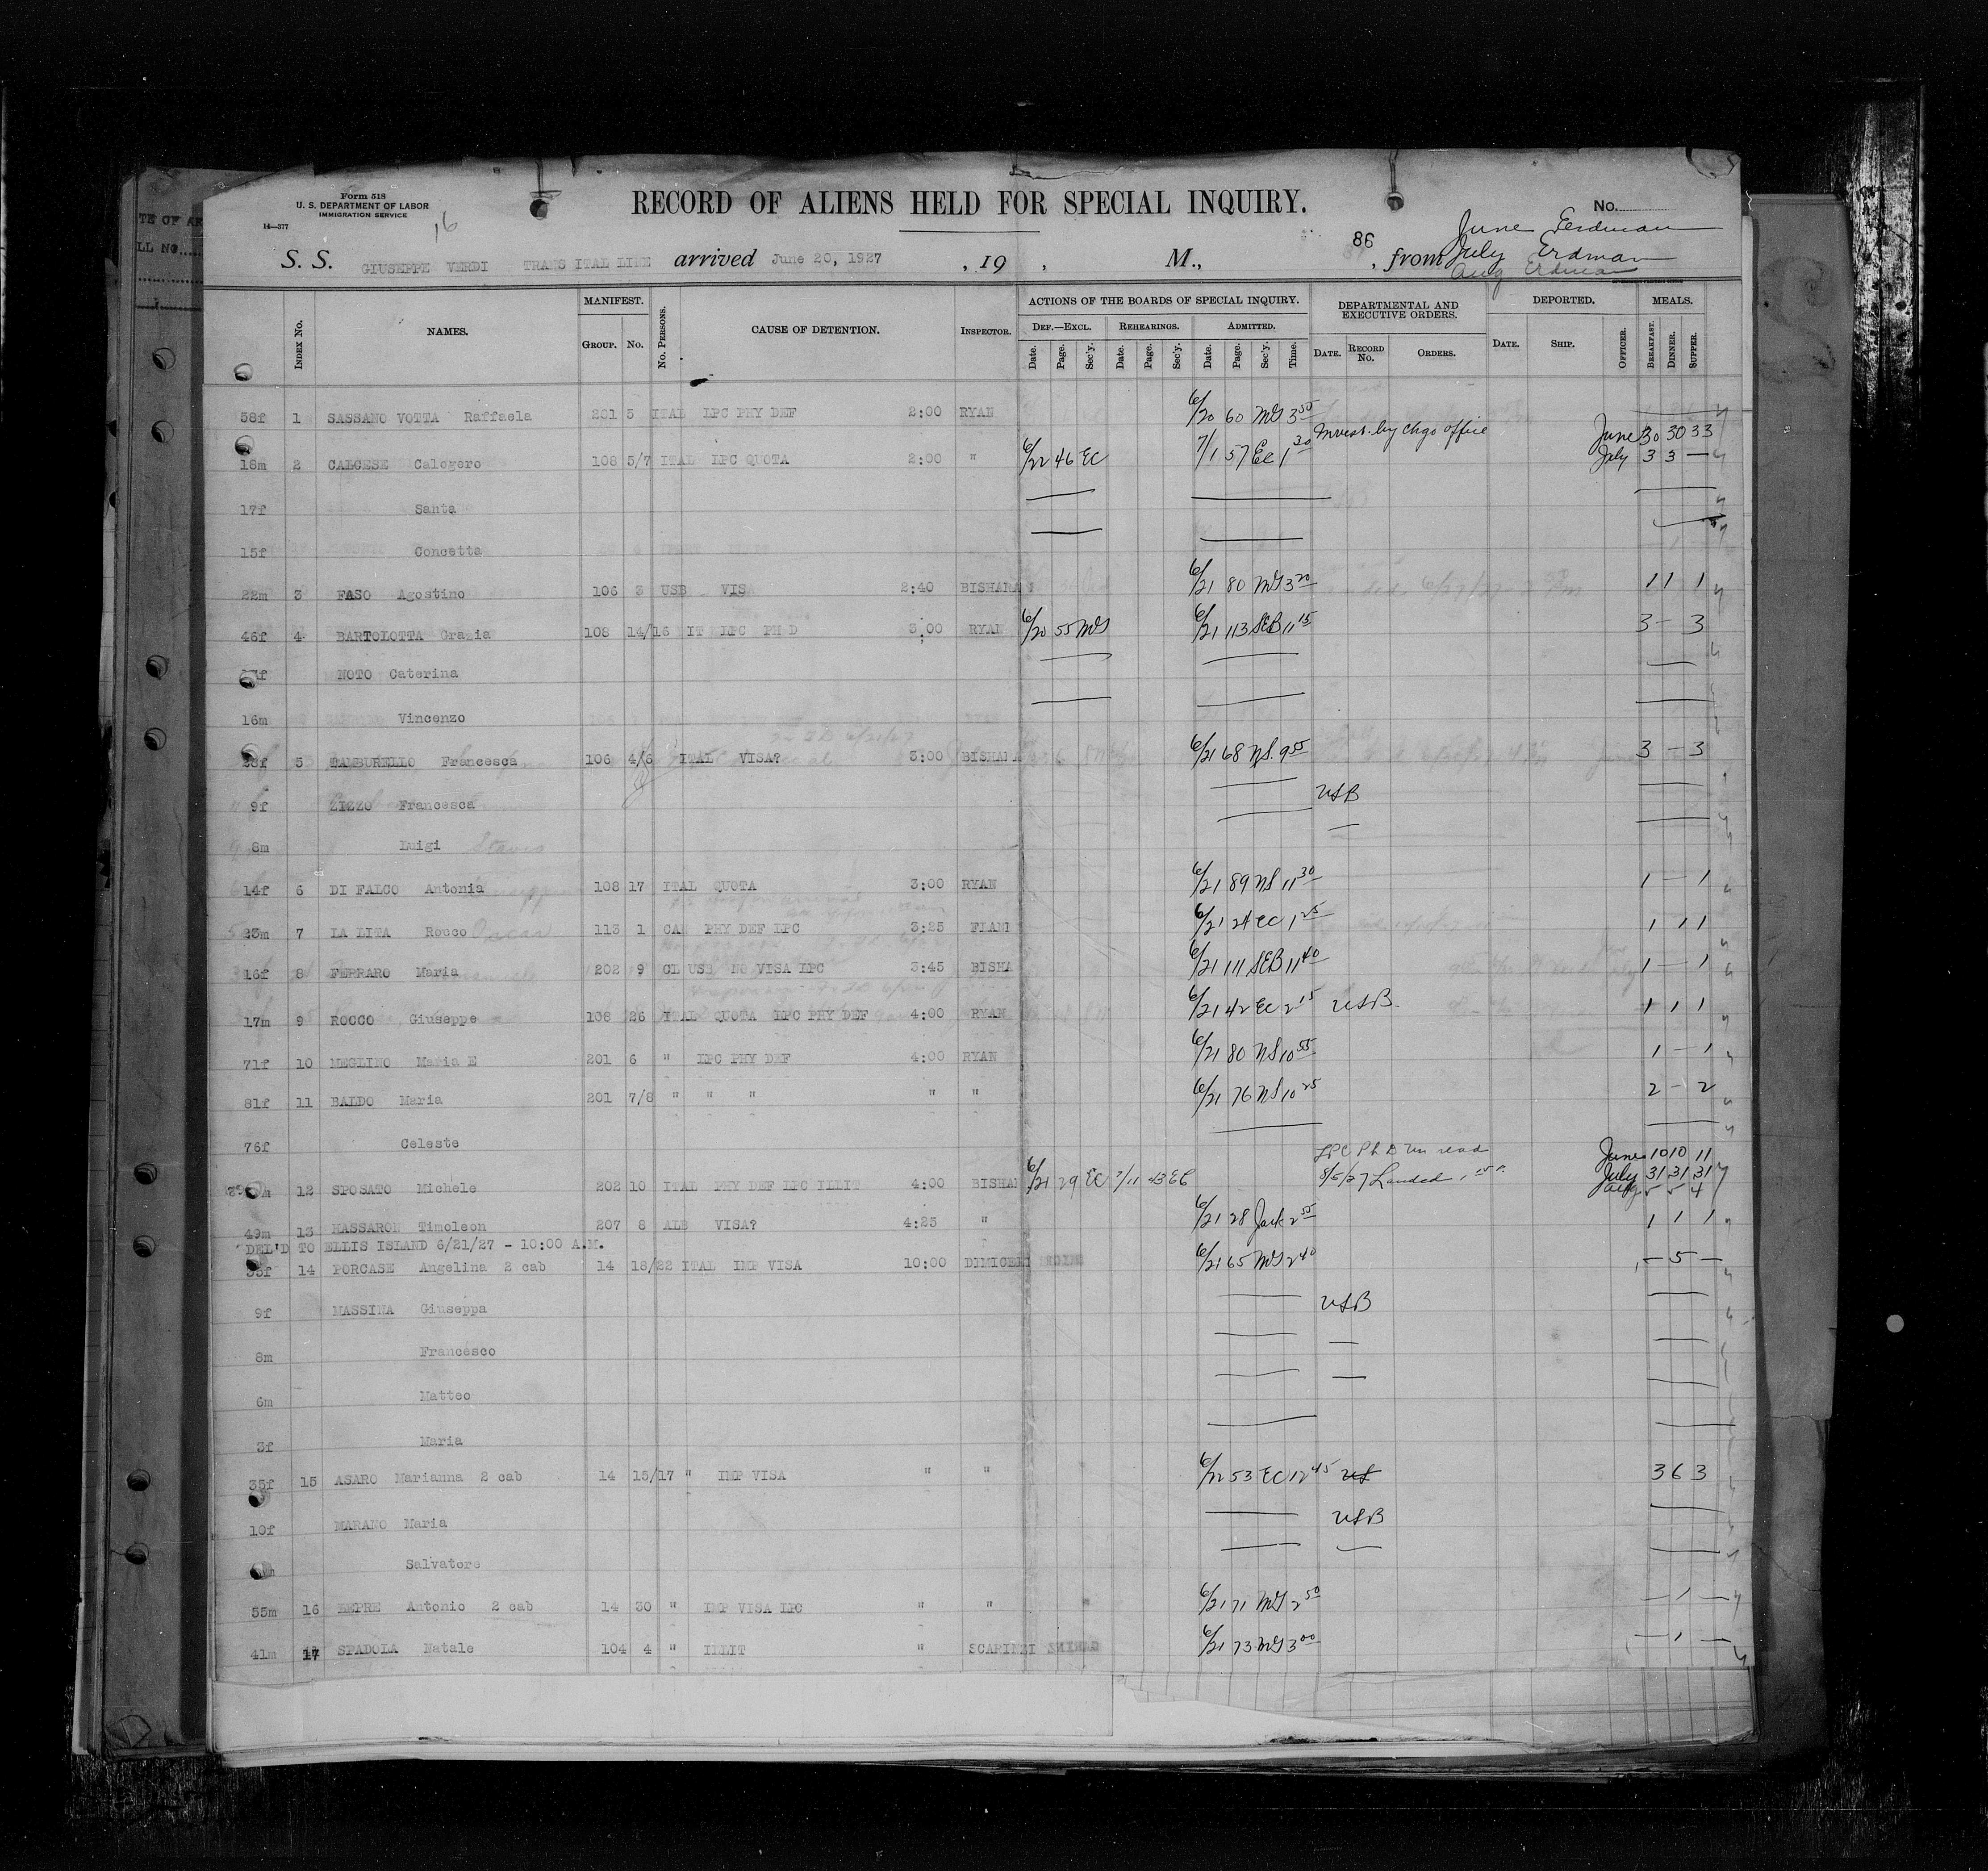 TE OF AR
LL NO.
Form 518
U. S. DEPARTMENT OF LABOR
IMMIGRATION SERVICE
14—377
16
RECORD OF ALIENS HELD FOR SPECIAL INQUIRY.
No.
June Erdman
July Erdman
Aug Erdman
S. S. GIUSEPPE VERDI TRANS ITAL LINE arrived June 20, 1927 , 19 , M., 86 , from
INDEX No. NAMES. MANIFEST. GROUP. No. No. PERSONS. CAUSE OF DETENTION. INSPECTOR. ACTIONS OF THE BOARDS OF SPECIAL INQUIRY. DEF.—EXCL. Date. Page. Sec'y. REHEARINGS. Date. Page. Sec'y. ADMITTED. Date. Page. Sec'y. Time. DEPARTMENTAL AND EXECUTIVE ORDERS. DATE. RECORD No. ORDERS. DEPORTED. DATE. SHIP. OFFICER. MEALS. BREAKFAST. DINNER. SUPPER.
58f 1 SASSANO VOTTA Raffaela 201 5 ITAL LPC PHY DEF 2:00 RYAN 6/20 60 MG 3 50
Invest. by Chgo office June 30 30 33
18m 2 CALCESE Calogero 108 5/7 ITAL LPC QUOTA 2:00 " 6/22 46 EC 7/1 57 EC 1 30 July 3 3 —
17f Santa
15f Concetta
22m 3 FASO Agostino 106 3 USB VISA 2:40 BISHARA 6/21 80 MG 3 20 1 1 1
46f 4 BARTOLOTTA Grazia 108 14/16 IT LPC PH D 3:00 RYAN 6/20 55 MG 6/21 113 SEB 11 15 3 — 3
NOTO Caterina
16m Vincenzo
5 TAMBURELLO Francesca 106 4/6 ITAL VISA? 3:00 BISHARA 6/21 68 NS 9 55 3 — 3
9f ZIZZO Francesca USB
8m Luigi
14f 6 DI FALCO Antonia 108 17 ITAL QUOTA 3:00 RYAN 6/21 89 NS 11 30 1 — 1
23m 7 LA LITA Rocco 113 1 CAN PHY DEF LPC 3:25 6/21 24 EC 1 25 1 1 1
16f 8 FERRARO Maria 202 9 CL USB NO VISA LPC 3:45 BISHA 6/21 111 SEB 11 40 1 — 1
17m 9 ROCCO Giuseppe 108 26 ITAL QUOTA LPC PHY DEF 4:00 RYAN 6/21 42 EC 2 15 USB 1 1 1
71f 10 MEGLINO Maria E 201 6 " LPC PHY DEF 4:00 RYAN 6/21 80 NS 10 55 1 — 1
81f 11 BALDO Maria 201 7/8 " " " " " 6/21 76 NS 10 25 2 — 2
76f Celeste
LPC Ph D Un read June 10 10 11
12 SPOSATO Michele 202 10 ITAL PHY DEF LPC ILLIT 4:00 BISHAR 6/21 29 EC 7/11 43 EC 8/5/27 Landed July 31 31 31
Aug 5 5 4
49m 13 MASSARON Timoleon 207 8 ALB VISA? 4:25 " 6/21 28 Jack 2 55 1 1 1
DEL'D TO ELLIS ISLAND 6/21/27 - 10:00 A.M.
33f 14 PORCASE Angelina 2 cab 14 18/22 ITAL IMP VISA 10:00 DIMICELI 6/21 65 MG 2 40 — 5 —
9f MASSINA Giuseppa USB
8m Francesco
6m Matteo
3f Maria
35f 15 ASARO Marianna 2 cab 14 15/17 " IMP VISA " " 6/22 53 EC 12 45 3 6 3
10f MARANO Maria USB
Salvatore
55m 16 LEPRE Antonio 2 cab 14 30 " IMP VISA LPC " " 6/21 71 MG 2 50 — 1 —
41m 17 SPADOLA Natale 104 4 " ILLIT " SCARINZI 6/21 73 MG 3 00 — 1 —